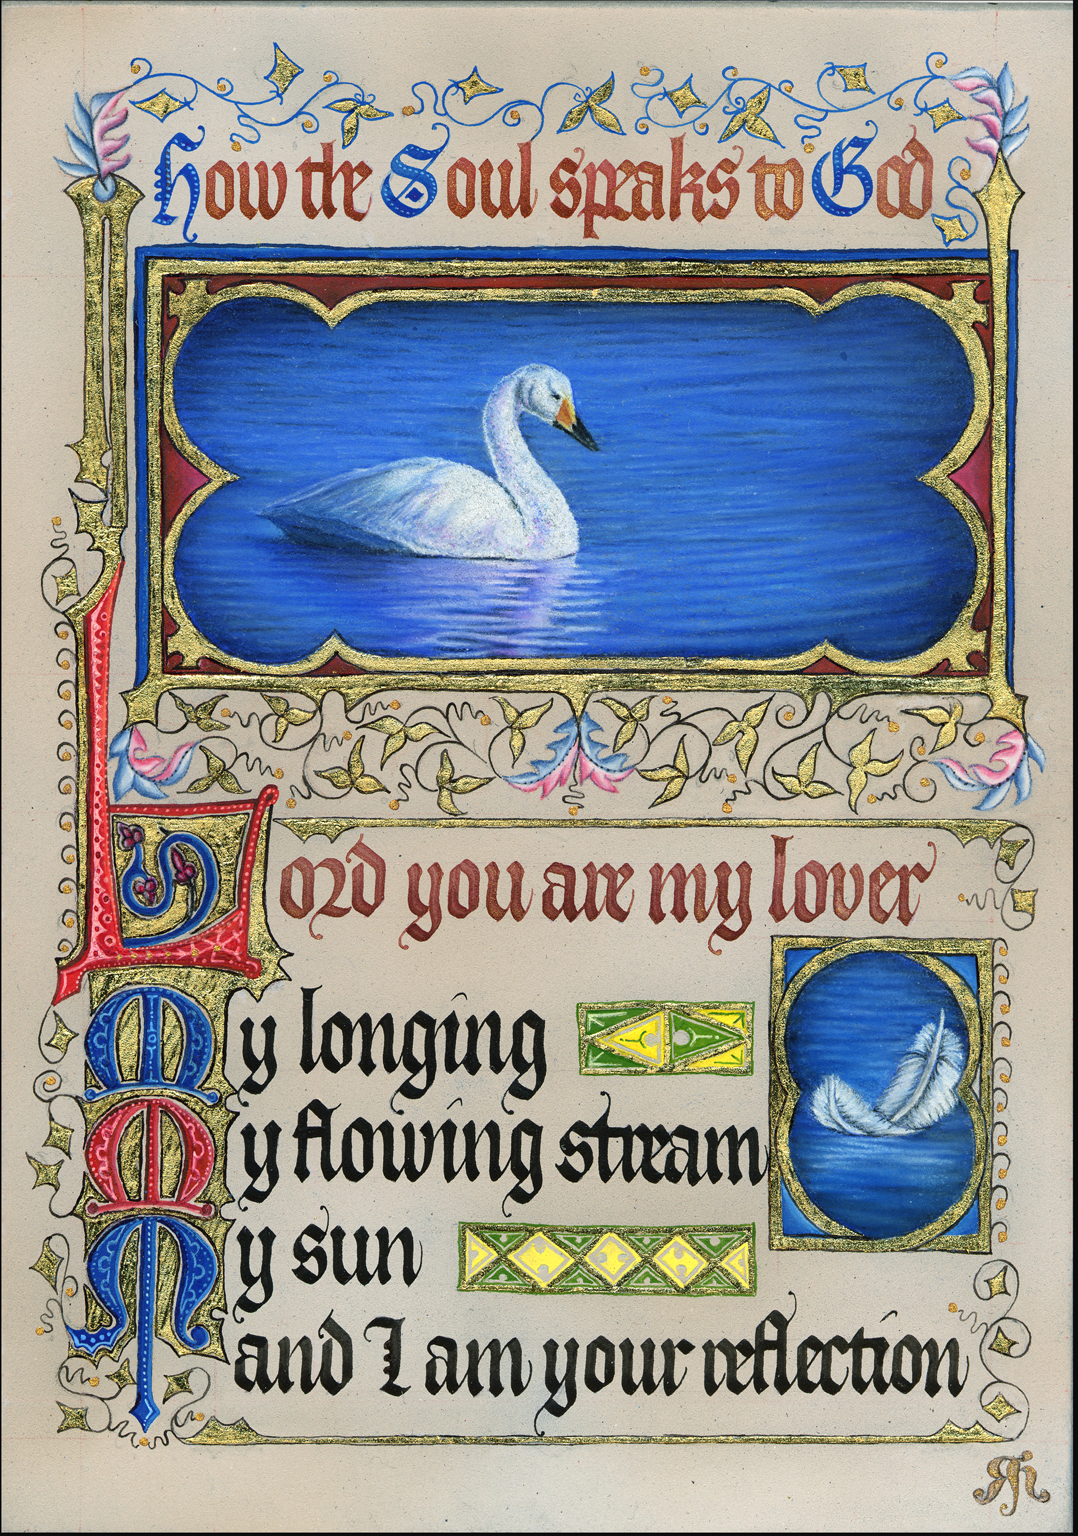 How the Soul speaks to God
Lord you are my lover
My longing
My flowing stream
My sun
and I am your reflection